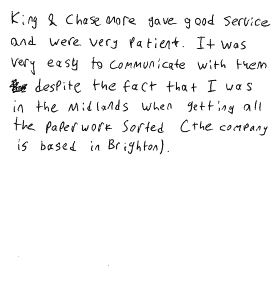 King & Chasemore gave good service
and were very patient. It was
very easy to communicate with them
despite the fact that I was
in the Midlands when getting all
the paperwork sorted (the company
is based in Brighton).